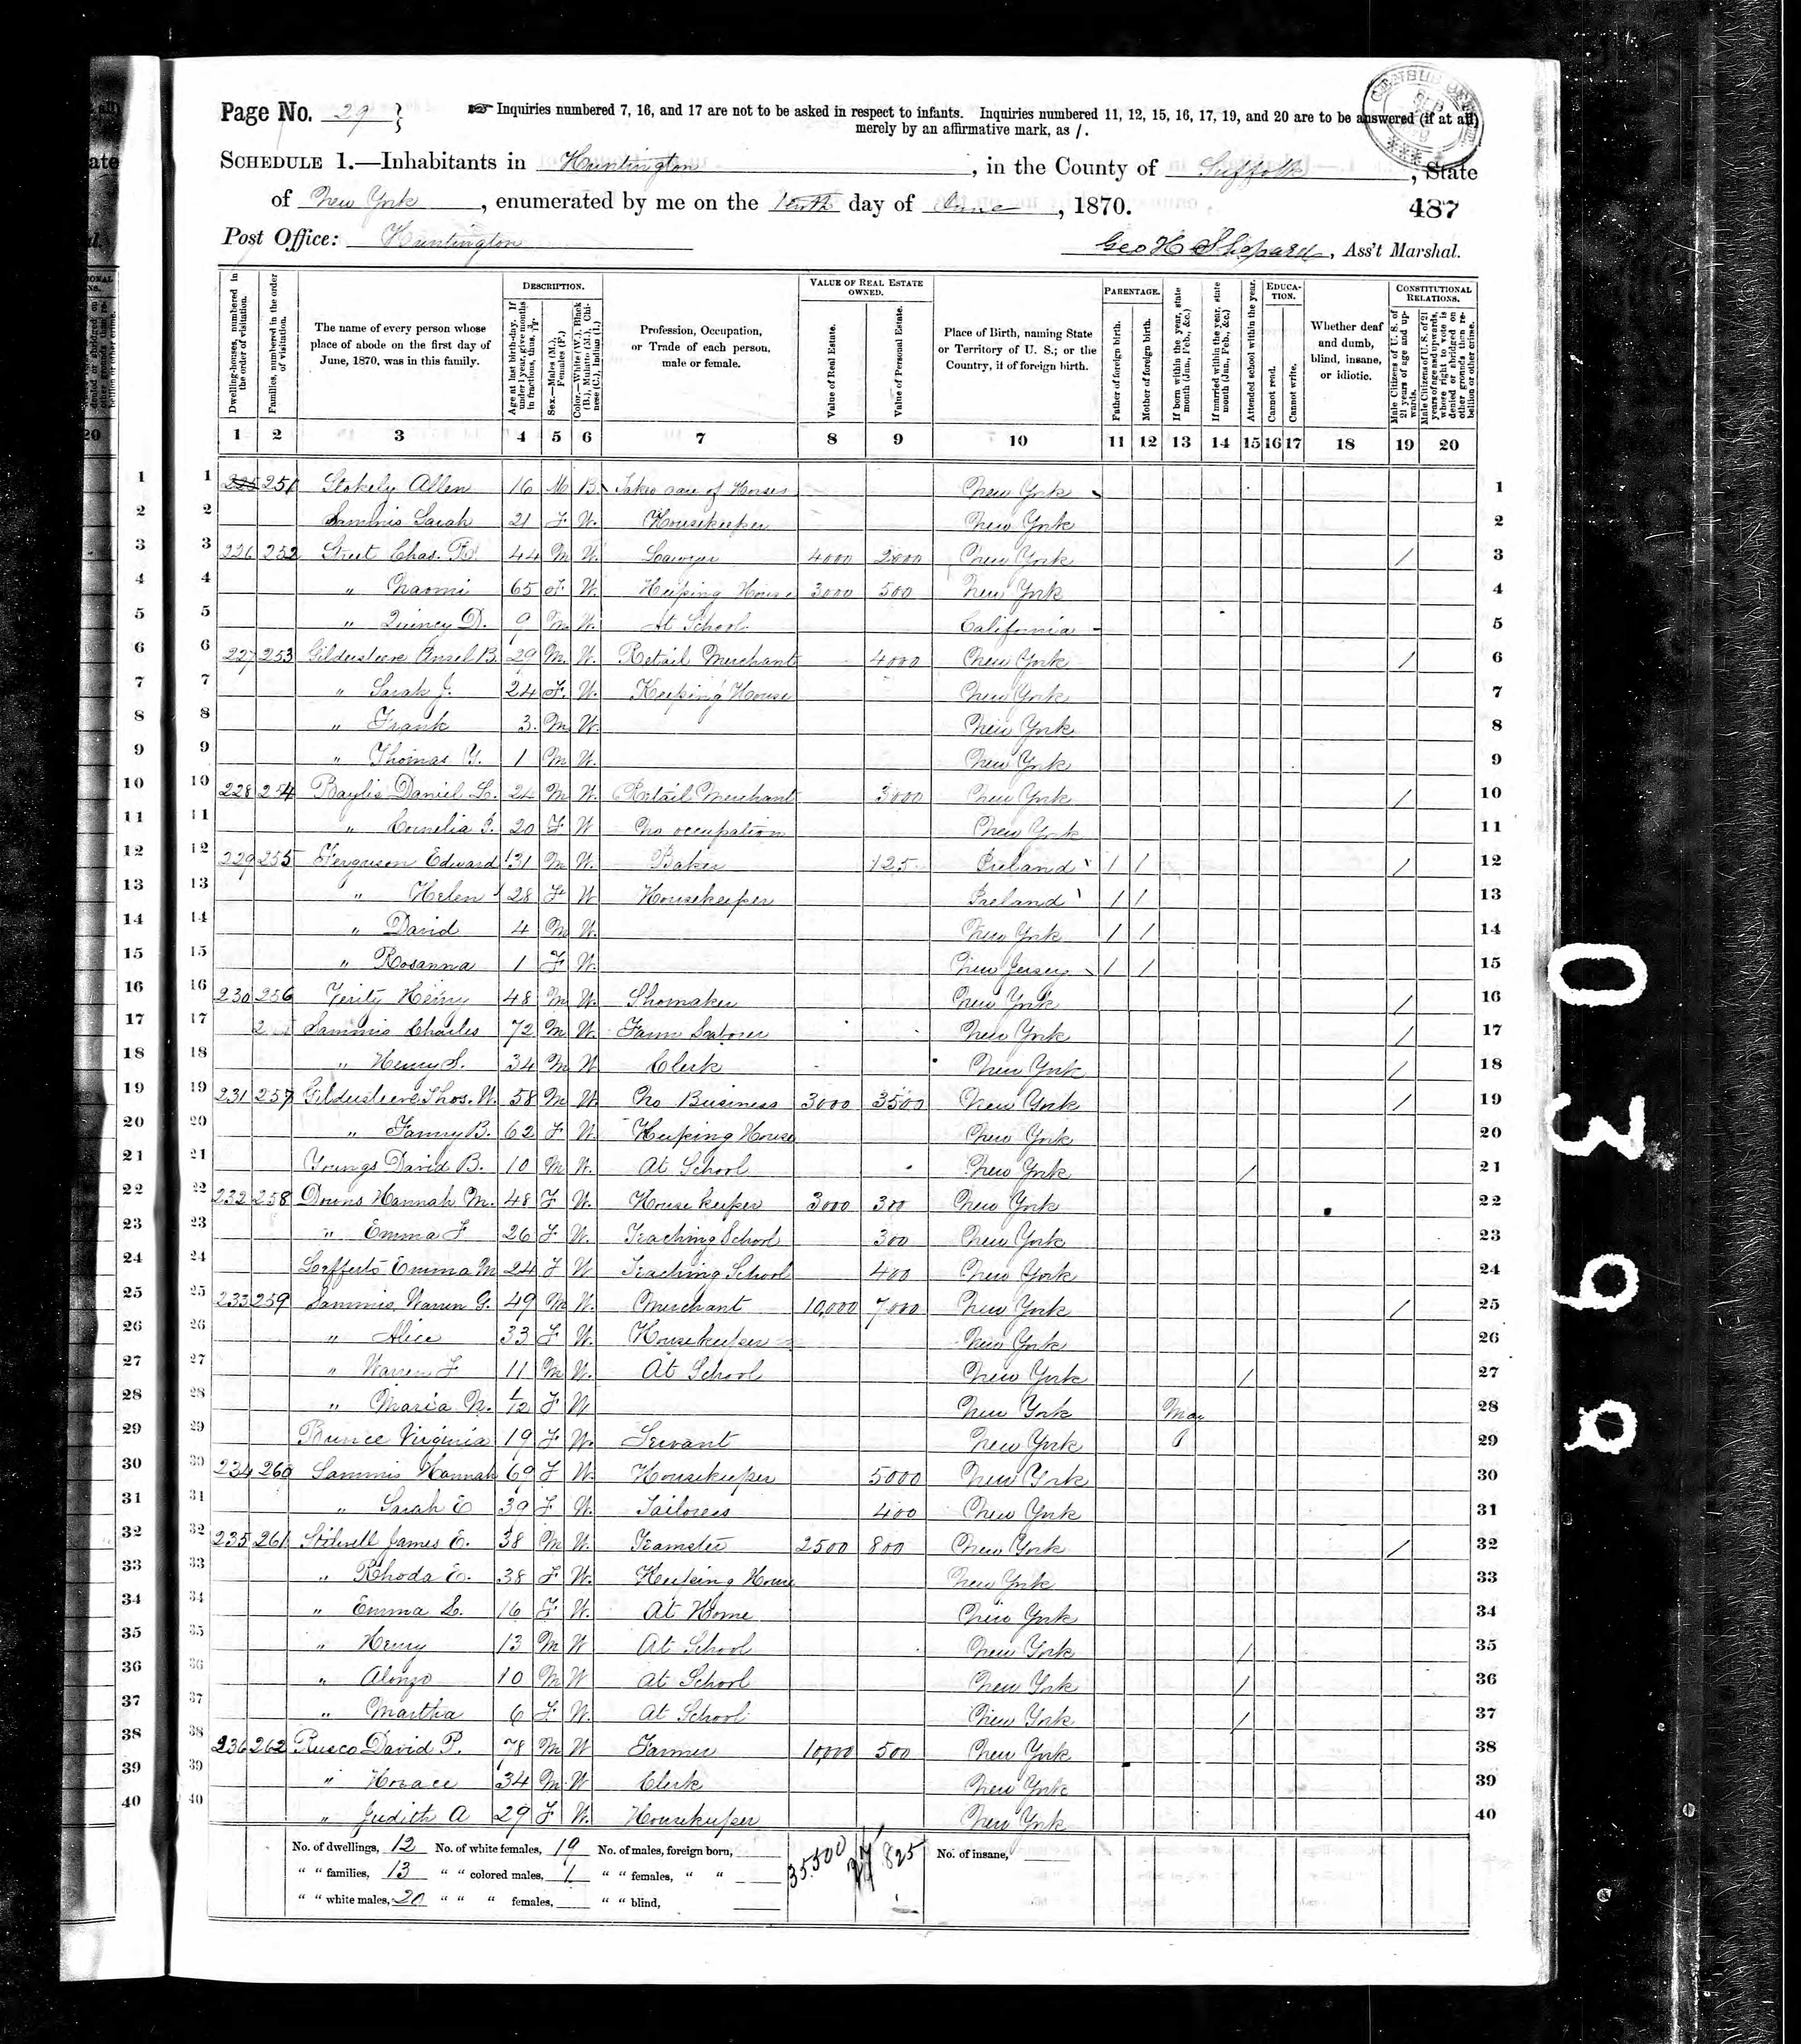 Page No. 29
☞ Inquiries numbered 7, 16, and 17 are not to be asked in respect to infants. Inquiries numbered 11, 12, 15, 16, 17, 19, and 20 are to be answered (if at all)
merely by an affirmative mark, as /.
SCHEDULE 1.—Inhabitants in Huntington, in the County of Suffolk, State
of New York, enumerated by me on the tenth day of June, 1870.
487
Post Office: Huntington
Geo H Shepard, Ass't Marshal.
Dwelling-houses, numbered in the order of visitation.
Families, numbered in the order of visitation.
The name of every person whose place of abode on the first day of June, 1870, was in this family.
DESCRIPTION.
Age at last birth-day. If under 1 year, give months in fractions, thus, 3/12.
Sex.—Males (M.), Females (F.)
Color.—White (W.), Black (B.), Mulatto (M.), Chinese (C.), Indian (I.)
Profession, Occupation, or Trade of each person, male or female.
VALUE OF REAL ESTATE OWNED.
Value of Real Estate.
Value of Personal Estate.
Place of Birth, naming State or Territory of U. S.; or the Country, if of foreign birth.
PARENTAGE.
Father of foreign birth.
Mother of foreign birth.
If born within the year, state month (Jan., Feb., &c.)
If married within the year, state month (Jan., Feb., &c.)
Attended school within the year.
EDUCATION.
Cannot read.
Cannot write.
Whether deaf and dumb, blind, insane, or idiotic.
CONSTITUTIONAL RELATIONS.
Male Citizens of U. S. of 21 years of age and upwards.
Male Citizens of U. S. of 21 years of age and upwards, where right to vote is denied or abridged on other grounds than rebellion or other crime.
1 2 3 4 5 6 7 8 9 10 11 12 13 14 15 16 17 18 19 20
1 225 251 Stokely Allen 16 M B Takes care of Horses New York 1
2 Sammis Sarah 21 F W. Housekeeper New York 2
3 226 252 Street Chas. R 44 M W. Lawyer 4000 2000 New York / 3
4 " Naomi 65 F W. Keeping House 3000 500 New York 4
5 " Quincy D. 9 M W. At School California 5
6 227 253 Gildersleeve Ansel B. 29 M. W. Retail Merchant 4000 New York / 6
7 " Sarah J. 24 F. W. Keeping House New York 7
8 " Frank 3 M W. New York 8
9 " Thomas Y. 1 M W. New York 9
10 228 254 Baylis Daniel L. 24 M W. Retail Merchant 3000 New York / 10
11 " Cornelia J. 20 F W No occupation New York 11
12 229 255 Ferguson Edward 31 M W. Baker 125 Ireland / / / 12
13 " Helen 28 F W Housekeeper Ireland / / 13
14 " David 4 M W. New York / / 14
15 " Rosanna 1 F W. New Jersey / / 15
16 230 256 Verity Henry 48 M W. Shomaker New York / 16
17 Sammis Charles 72 M W. Farm Laborer New York / 17
18 " Henry S. 34 M W Clerk New York / 18
19 231 257 Gildersleeve Thos. W. 58 M W. No Business 3000 3500 New York / 19
20 " Fanny B. 62 F W. Keeping House New York 20
21 Youngs David B. 10 M W. At School New York / 21
22 232 258 Downs Hannah M. 48 F W. House keeper 3000 300 New York 22
23 " Emma F 26 F W. Teaching School 300 New York 23
24 Lefferts Emma M 24 F W Teaching School 400 New York 24
25 233 259 Sammis, Warren G. 49 M W. Merchant 10,000 7000 New York / 25
26 " Alice 33 F W. Housekeeper New York 26
27 " Warren F 11 M W. At School New York / 27
28 " Maria N. 1/12 F W New York May 28
29 Bunce Virginia 19 F W. Servant New York 29
30 234 260 Sammis Hannah 69 F W. Housekeeper 5000 New York 30
31 " Sarah E 39 F W. Tailoress 400 New York 31
32 235 261 Stilwell James E. 38 M W. Teamster 2500 800 New York / 32
33 " Rhoda E. 38 F W. Keeping House New York 33
34 " Emma L. 16 F W. At Home New York 34
35 " Henry 13 M W At School New York / 35
36 " Alonzo 10 M W At School New York / 36
37 " Martha 6 F W. At School New York / 37
38 236 262 Rusco David P. 78 M W Farmer 10,000 500 New York 38
39 " Horace 34 M W Clerk New York 39
40 " Judith A 29 F W. Housekeeper New York 40
No. of dwellings, 12 No. of white females, 19 No. of males, foreign born, 35,500 27,825 No. of insane,
" " families, 13 " " colored males, 1 " " females, " "
" " white males, 20 " " " females, " " blind,
0399